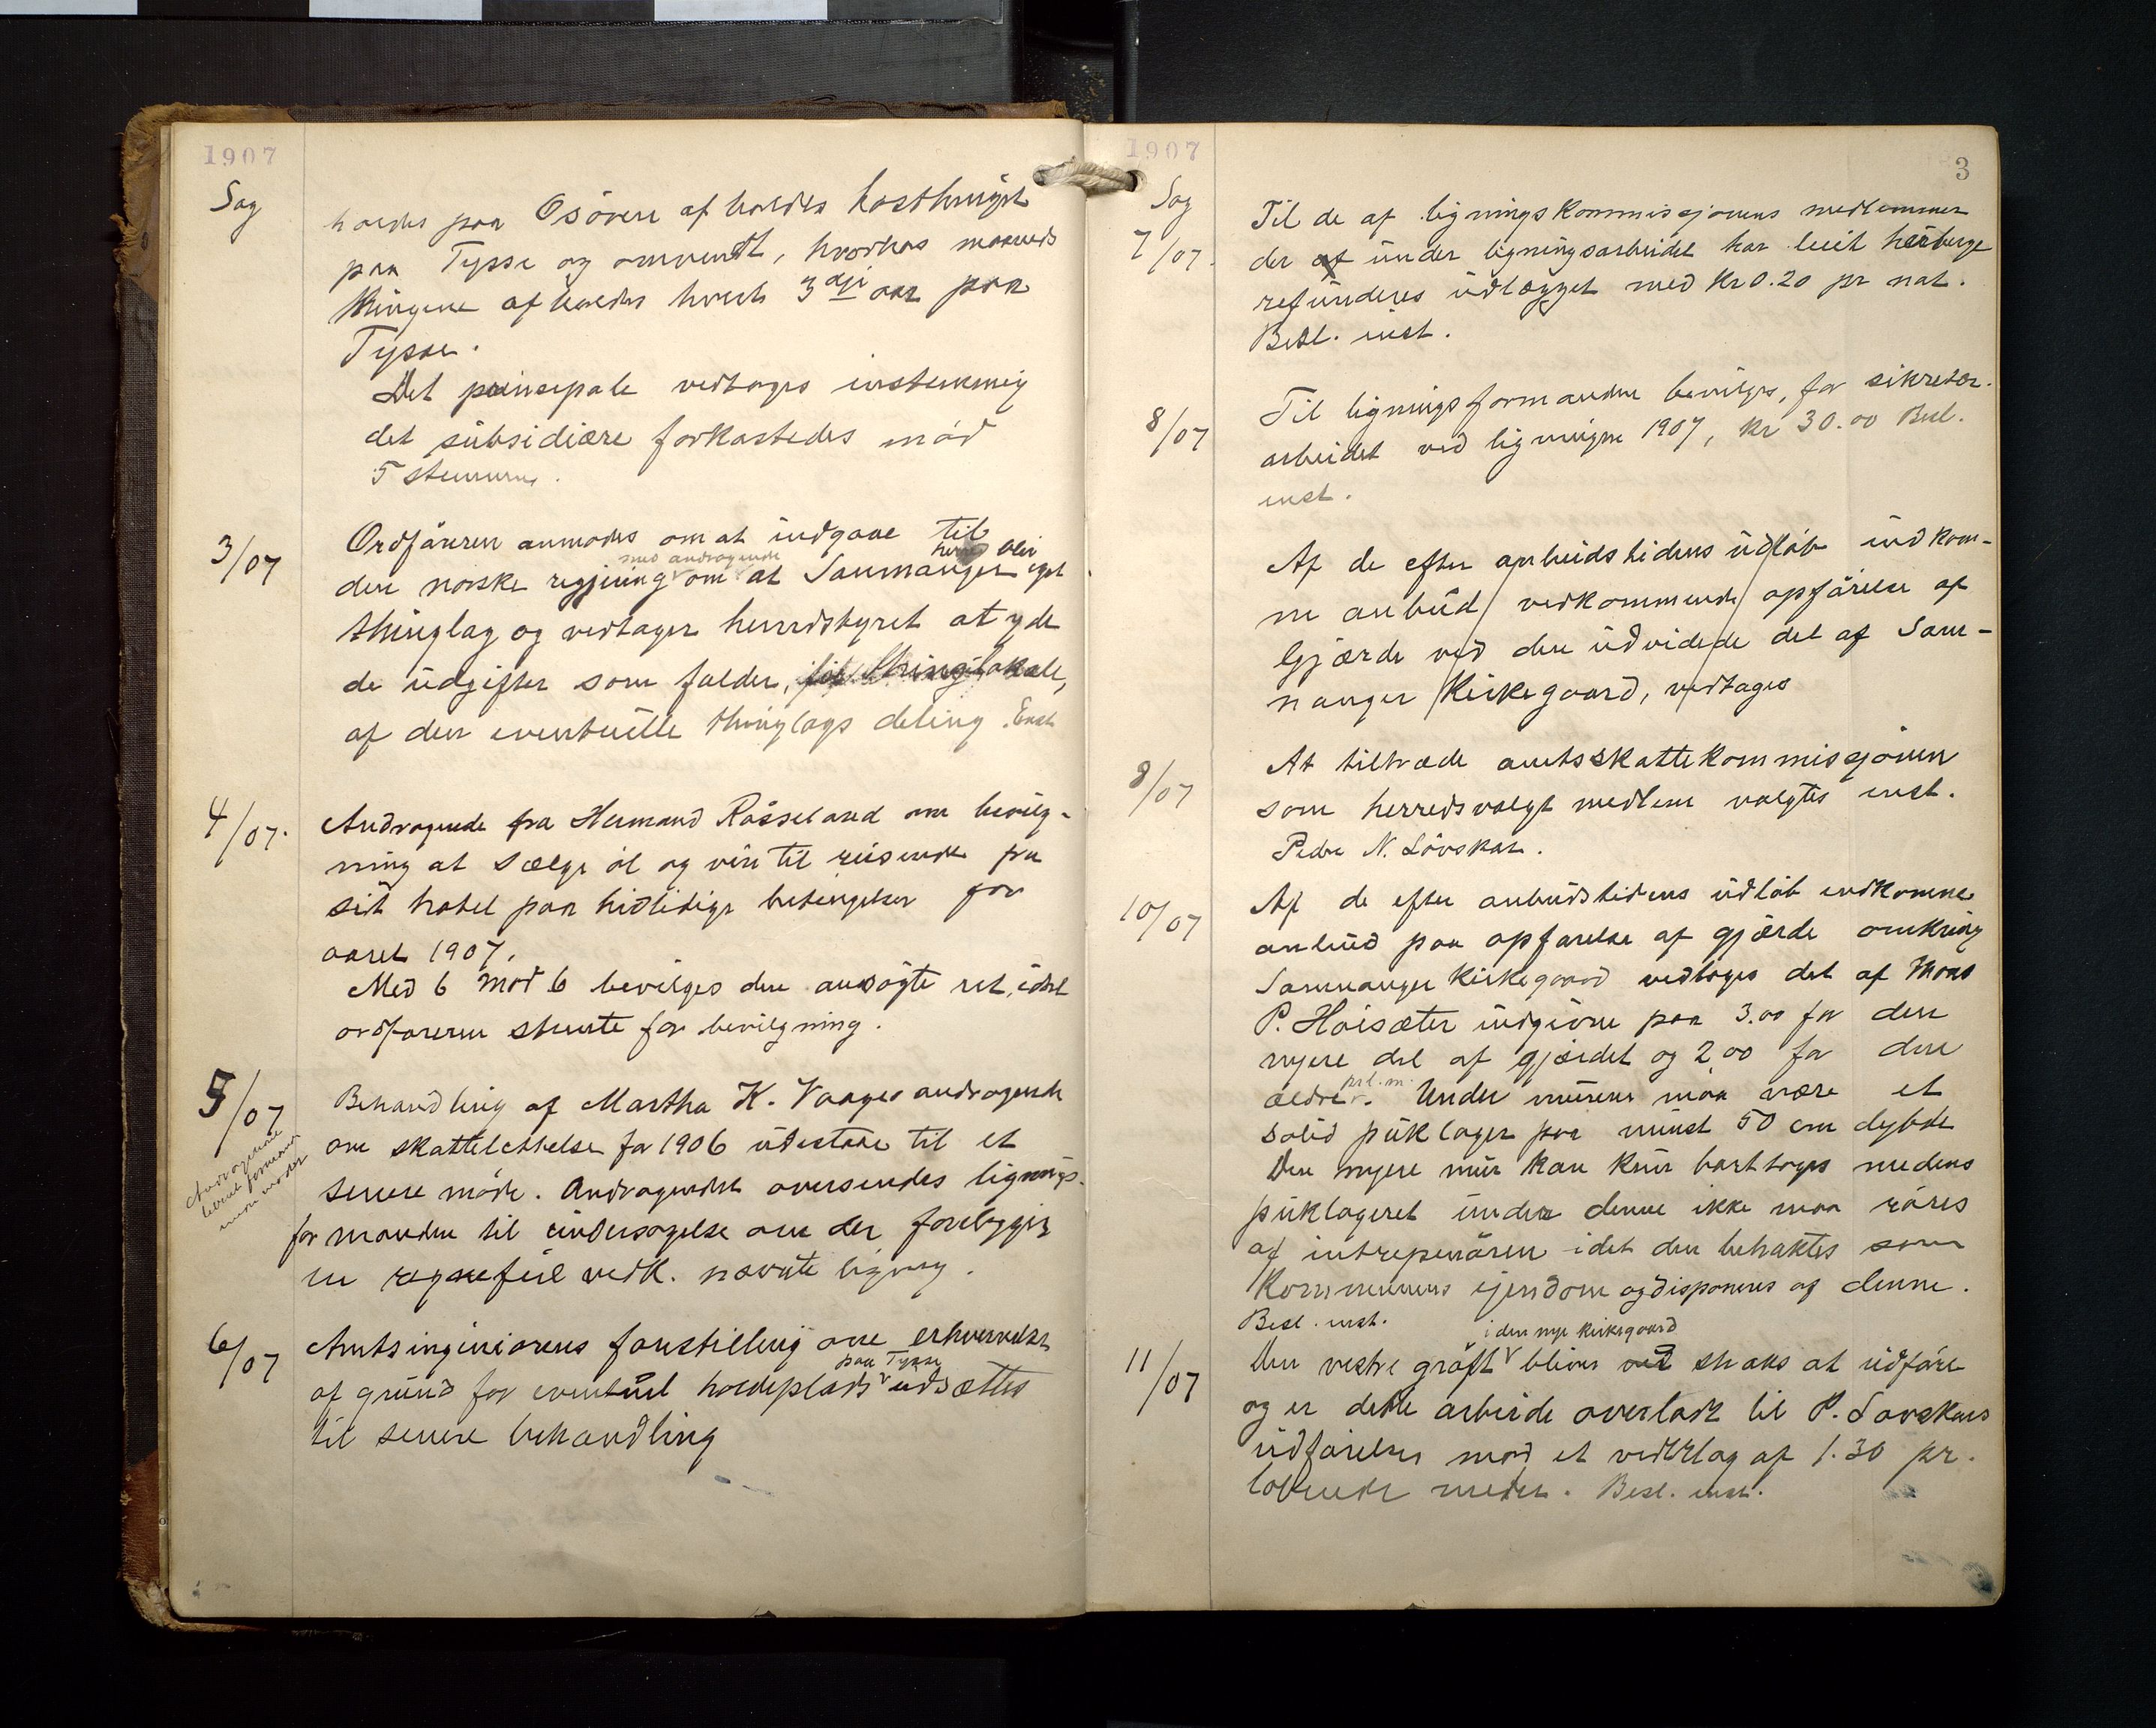 1907
Sag
holdes paa Osören afholdes höstthinget
paa Tysse og omvendt, hvorhos maaneds
thingene afholdes hvert 3die aar paa
Tysse.
Det prinsepale vedtoges instemmig
det subsidiære forkastedes mod
5 stemmer.
3/07
Ordføreren anmodes om at indgaae til
den norske regjering med andragende om at Samnanger herred blir eget
thinglag og vedtager herredstyret at yde
de udgifter som falder, for thinglokale,
af den eventuelle thinglags deling. Enst
4/07.
Andragende fra Hermand Rösseland om bevilg-
ning at sælge öl og vin til reisende fra
sit hotel paa hidtidige betingelser for
aaret 1907.
Med 6 mod 6 bevilges den ansögte ret, idet
ordføreren stemte for bevilgning.
5/07
Andragende
Behandling af Martha K. Vaages andragende
om skattelettelse for 1906 udestaar til et
senere möde. Andragendet oversendes lignings-
formanden til undersøgelse om der foreligger
en regnefeil vedk. nævnte ligning.
6/07
Amtsingeniørens forestilling om erhvervelse
af grund for eventuel holdeplads paa Tysse udsættes
til senere behandling
1907
3
Sag
7/07.
Til de af ligningskommissjonens medlemmer
der af under ligningsarbeidet har leiet herberge
refunderes udlægget med Kr 0.20 pr nat.
Besl. enst.
8/07
Til ligningsformanden bevilges, for sikretær-
arbeidet ved ligningen 1907, Kr 30.00 Besl.
enst.
Af de efter anbudstidens udløb indkom-
ne anbud vedkommende opførelse af
Gjærde ved den udvidede del af Sam-
nanger Kirkegaard, vedtages
9/07
At tiltræde amtsskattekommissjonen
som herredsvalgt medlem valgtes enst.
Peder N. Lövskar.
10/07
Af de efter anbudstidens udløb indkomne
anbud paa opførelse af gjærde omkring
Samnanger Kirkegaard vedtoges det af Mons
P. Höisæter indgivne paa 3.00 for den
nyere del af gjærdet og 2,00 for den
ældre prl.m. Under muren maa være et
solid puklager paa minst 50 cm dybde
Den nyere mur kan kun borttages medens
puklageret under denne ikke maa röres
af intreprenören idet den betraktes som
Kommunens ejendom og disponeres af denne.
Besl. enst.
11/07
Den vestre gröft i den nye kirkegaard bliver ved straks at udføre
og er dette arbeide overladt til P. Lövskars
udførelse mod et vederlag af 1.30 pr.
löbende meter. Besl. enst.